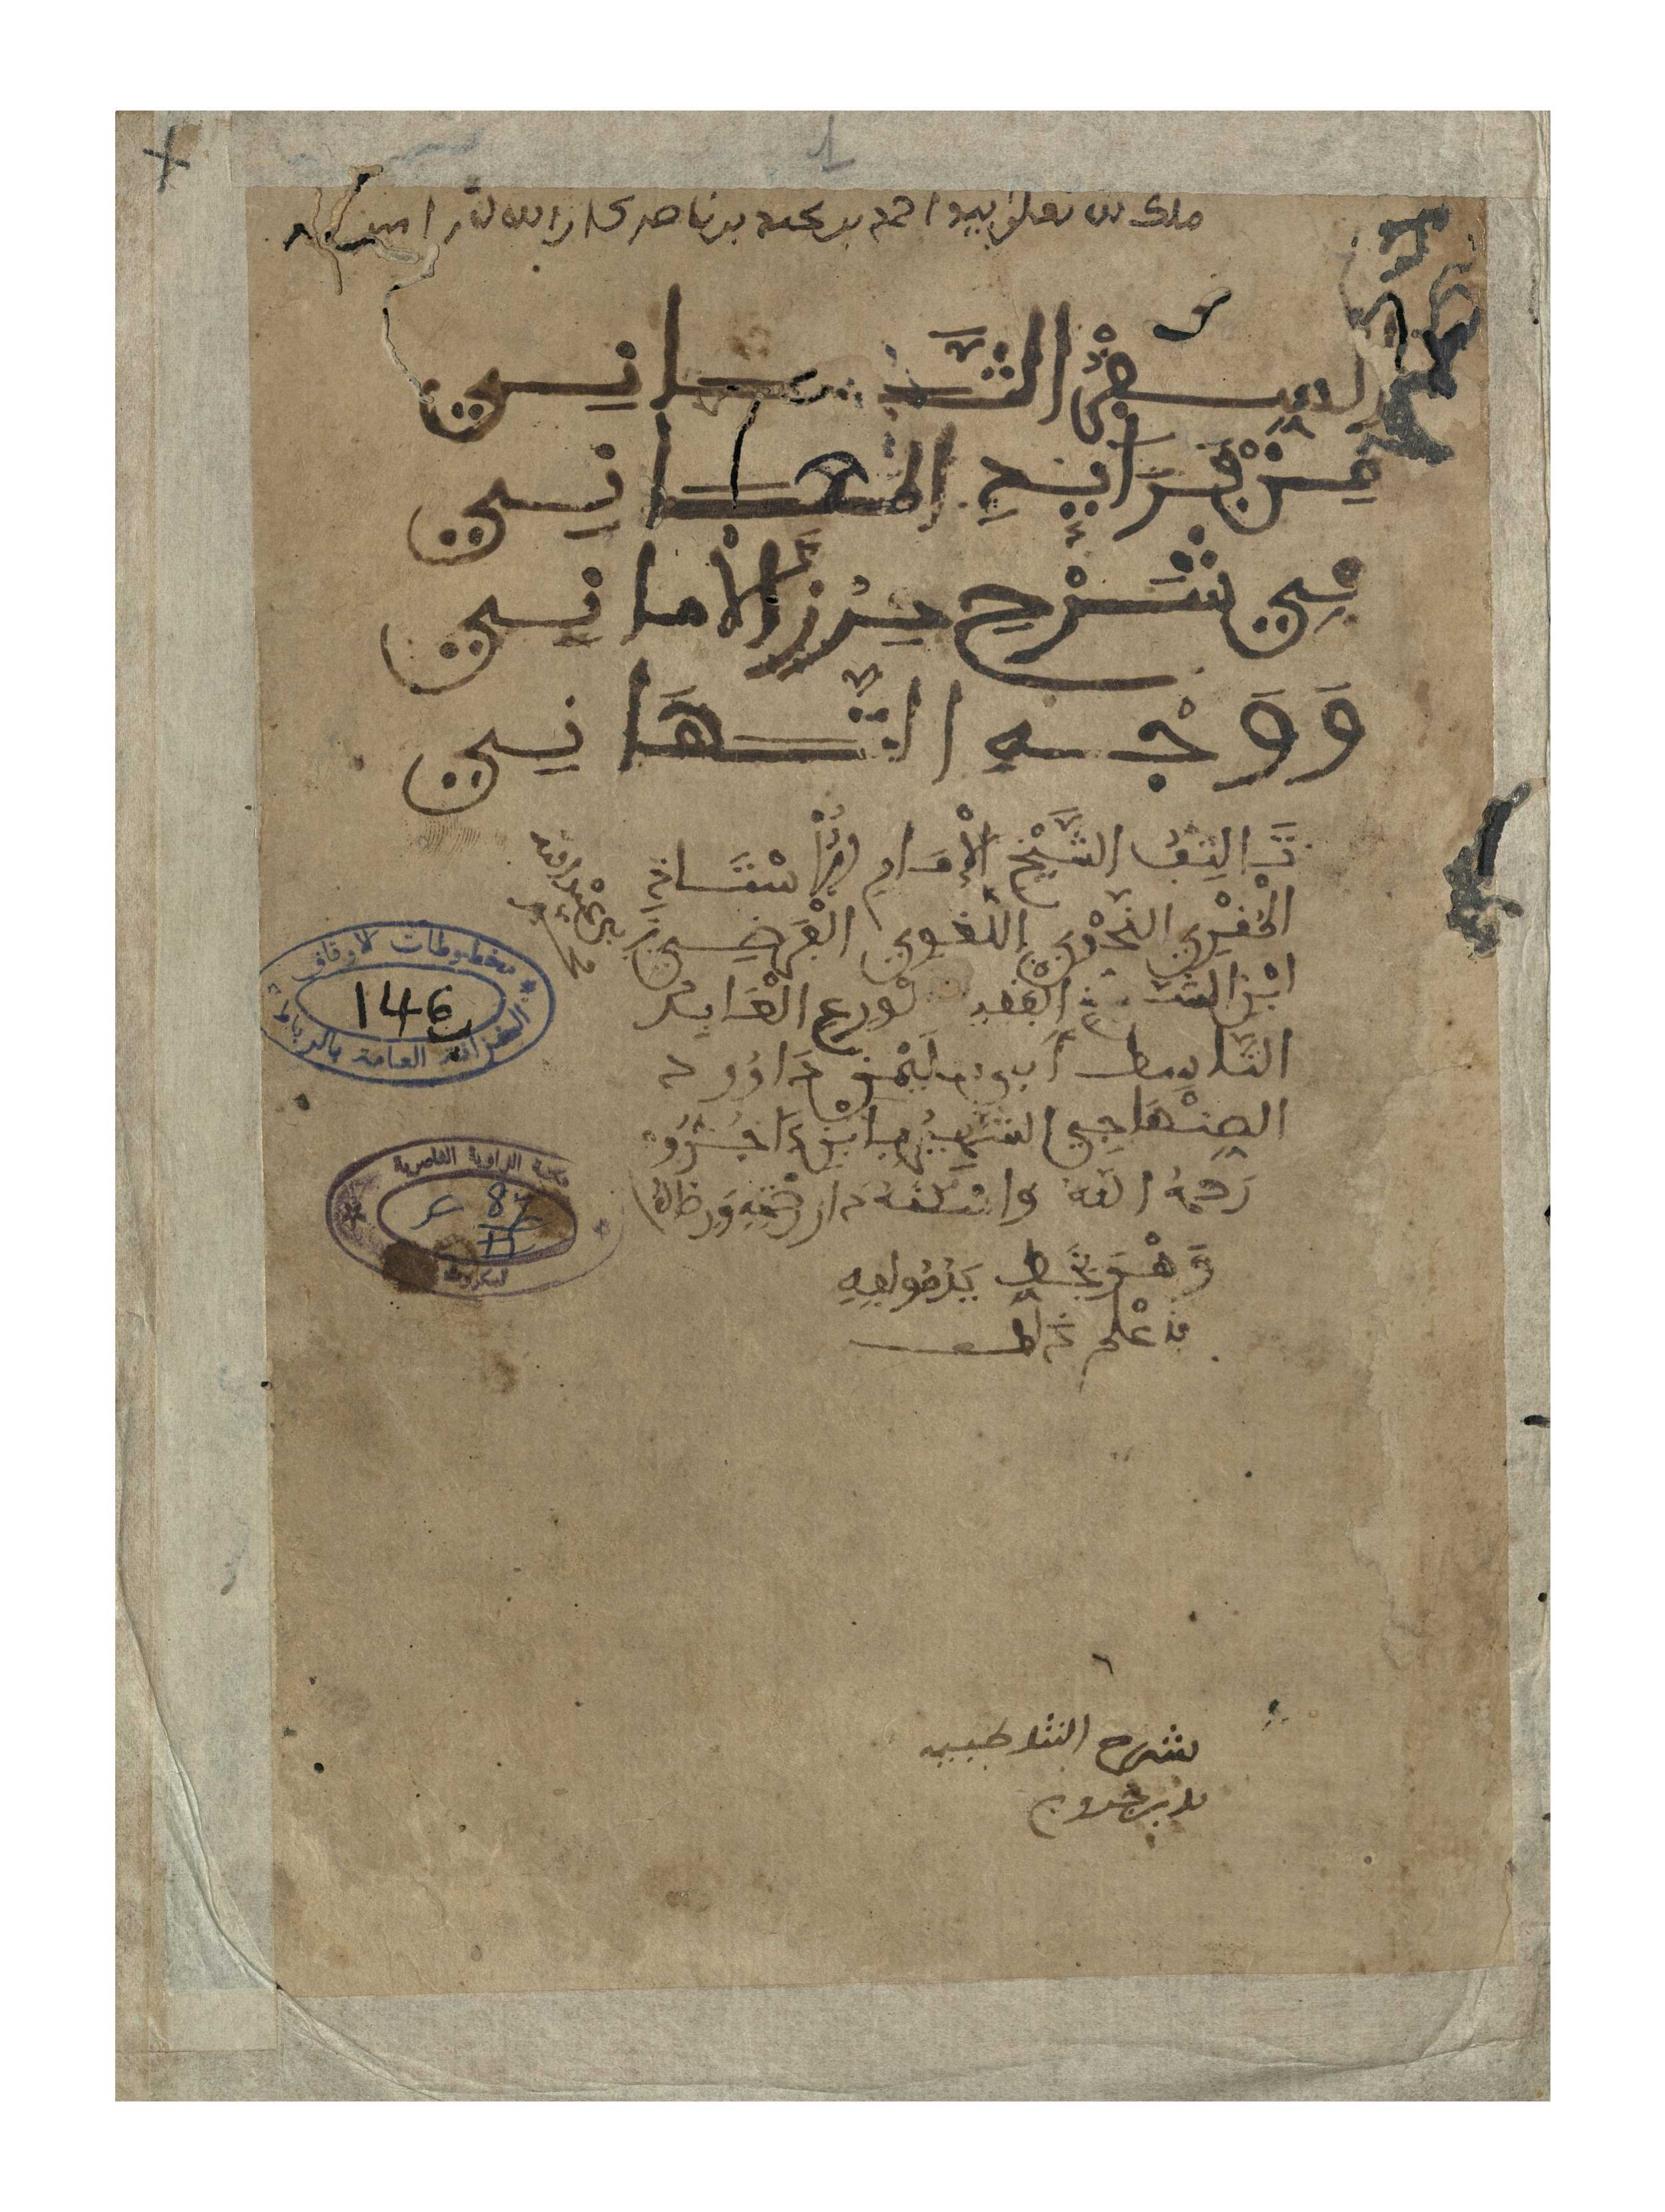 1
ملك لله تعلى بيد احمد بن محمد بن ناصر كان الله له امين
السفر الثاني
من فرائد المعاني
في شرح حرز الأماني
ووجه التهاني
تاليف الشيخ الإمام الأستاذ
المقرئ النحوي اللغوي الفرضي
ابن الشيخ الفقيه الورع العابد
الناسك أبي سليمن داوود
الصنهاجي الشهير بابن ءاجروم
رحمه الله واسكنه دار رحمته ورضاه
وهو بخط يد مؤلفه
فاعلم ذلك
بن محمد
مخطوطات الأوقاف
146
الخزانة العامة بالرباط
مكتبة الزاوية الناصرية
87
11
تمكروت
شرح الشاطبية
لابن اجروم